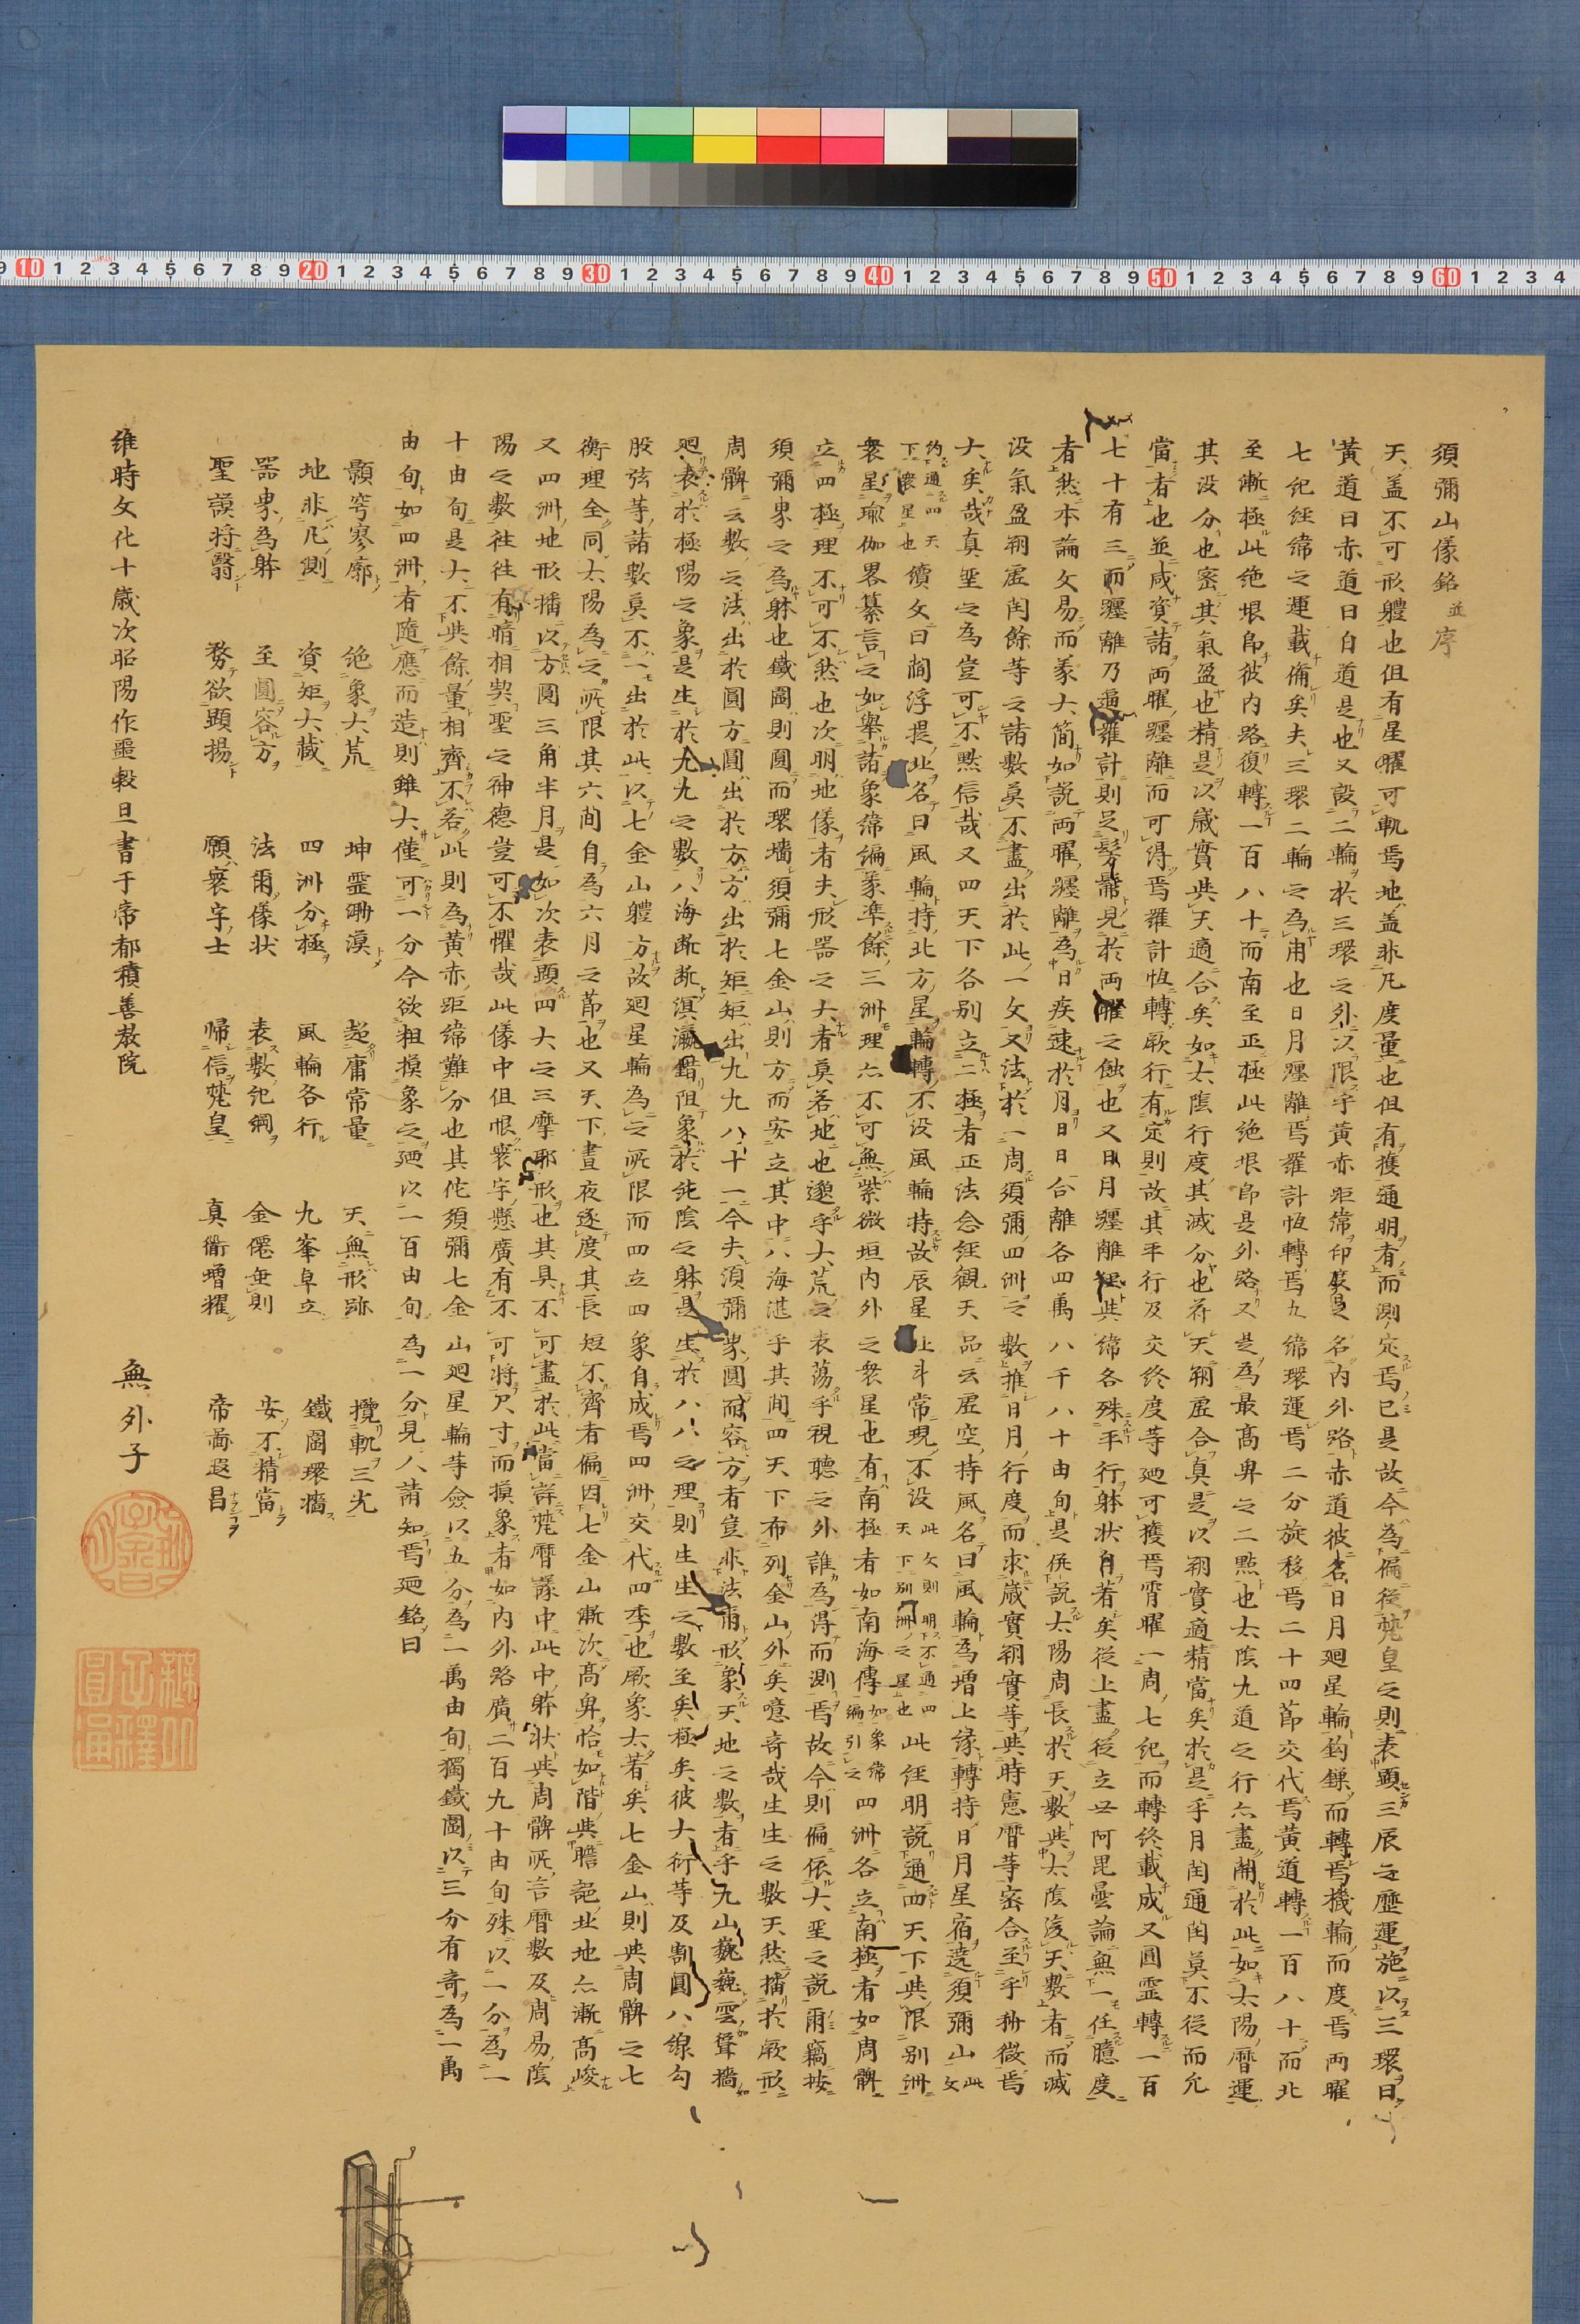 須彌山儀銘並序
天蓋不可形軆也但有星曜可軌焉地蓋非凡度量也但有獲通明者而測定焉已是故今為偏從梵皇之則表顯三辰之歷運施以三環曰
黃道曰赤道曰白道是也又設二輪於三環之外以限乎黃赤距緯印 名內外路赤道彼名日月廻星輪鈎鏁而轉焉機輪而度焉兩曜
七紀經緯之運載備矣夫三環二輪之為用也日月躔離焉羅計恆轉焉九緯環運焉二分旋移焉二十四節交代焉黃道轉一百八十而北
至漸極此絶垠即彼內路復轉一百八十而南至正極此絶垠即是外路又是為最高卑之二點也太陰九道之行亦盡開於此如太陽曆運
其没分也密其氣盈也精是以歲實與天適合矣如太陰行度其減分也符天朔虛合真是以朔實適精當矣於是乎月閏通閏莫不從而允
當者也並咸資諸兩曜躔離而可得焉羅計恆轉厥行有定則故其平行及交終度等廻可獲焉霄曜一周七紀而轉終載成又圓霊轉一百
七十有三而躔離乃 羅計則足髣髴見於兩曜之蝕也又日月躔離 與緯各殊平行躰狀自著矣從上盡從立世阿毘曇論無一任臆度
者然本論文易而義大簡如説兩曜躔離為日疾速於月日日合離各四萬八千八十由旬是俱説太陽周長於天數與太陰後天數者而減
没氣盈朔虛閏餘等之諸數莫不盡出於此一文又法於一周須彌四洲之數推日月行度而求歲實朔實等與時憲曆等密合至乎秒微焉
大矣哉真聖之為豈可不黙信哉又四天下各別立二極者正法念經觀天品云虛空持風名曰風輪為增上緣轉持日月星宿遶須彌山此文
約下通四天下衆星也續文曰閻浮提北名曰風輪持北方星輪轉不没風輪持故辰星北斗常現不没此文則明下不通四天下別洲之星上也此經明説通四天下與限別洲
衆星瑜伽畧纂言之如舉諸象緯編義準餘三洲理亦不可無紫微垣內外之衆星也有南極者如南海傳如象緯編引之四洲各立南極者如周髀
立四極理不可不然也次明地儀者夫形器之大者莫若地也邈乎大荒之表蕩乎視聽之外誰為得而測焉故今則偏依大聖之説爾竊按
須彌界之為躰也鐵圍則圓而環墻須彌七金山則方而安立其中八海湛乎其間四天下布列金山外矣噫奇哉生生之數天然播於厥形
周髀云數之法出於圓方圓出於方方出於矩矩出九九八十一今夫須彌界圓而容方者豈非法爾形象天地之數者乎九山巍巍雲聳墻
廻表於極陽之象是生於九九之數八海漸漸溟瀛錯阻象於純陰之躰是生於八八之理則生生之數至矣極矣彼大衍等及割圓八線勾
股弦等諸數莫不一出於此以七金山軆方故廻星輪為之所限而四立四象自成焉四洲交代四季也厥象大著矣七金山則與周髀之七
衡理全同太陽為之所限其六間自為六月之節也又天下晝夜逐度其長短不齊者偏因七金山漸次高卑恰如階與瞻葩北地亦漸高峻
又四洲地形播以方圓三角半月是如次表顕四大之三摩耶形也其具不可盡於此當詳梵曆 中此中躰狀與周髀所言曆數及周易陰
陽之數往往有暗相契聖之神德豈可不懼哉此儀中但恨寰宇懸廣有不可將尺寸而摸象者如內外路廣二百九十由旬殊以一分為一
十由旬是大不與餘量相齊不若此則為黃赤距緯難分也其佗須彌七金山廻星輪等僉以五分為一萬由旬獨鐵圍以三分有奇為一萬
由旬如四洲者隨應而造則雖大僅可一分今欲粗摸象之廻以一百由旬為一分見人請知焉廻銘曰
顥穹寥廓　絶象大荒　坤霊渺漠　超庸常量　天無形跡　攬軌三光
地非凡測　資矩大藏　四洲分極　風輪各行　九峯卓立　鐵圍環墻
器界為躰　至圓容方　法爾儀狀　表數紀綱　金僊垂則　安不精當
聖謨將翳　務欲顕揚　願寰宇士　歸信梵皇　真衢增耀　帝 遐昌
維時文化十歲次昭陽作噩穀旦書于帝都積善教院　無外子